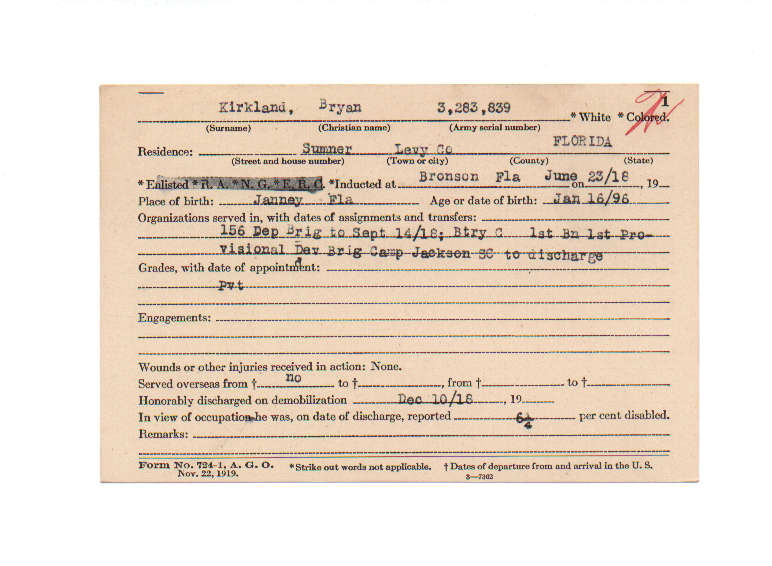 1
Kirkland, Bryan 3,283,839 * White * Colored.
(Surname) (Christian name) (Army serial number)
Residence: Sumner Levy Co FLORIDA
(Street and house number) (Town or city) (County) (State)
* Enlisted * R. A. * N. G. * E. R. C. * Inducted at Bronson Fla on June 23/18, 19
Place of birth: Janney Fla Age or date of birth: Jan 16/96
Organizations served in, with dates of assignments and transfers:
156 Dep Brig to Sept 14/18; Btry C 1st Bn 1st Pro-
visional Dev Brig Camp Jackson SC to discharge
Grades, with date of appointment:
Pvt
Engagements:
Wounds or other injuries received in action: None.
Served overseas from † no to †, from † to †
Honorably discharged on demobilization Dec 10/18, 19
In view of occupation he was, on date of discharge, reported 6¼ per cent disabled.
Remarks:
Form No. 724-1, A. G. O. * Strike out words not applicable. † Dates of departure from and arrival in the U. S.
Nov. 22, 1919. 3—7302